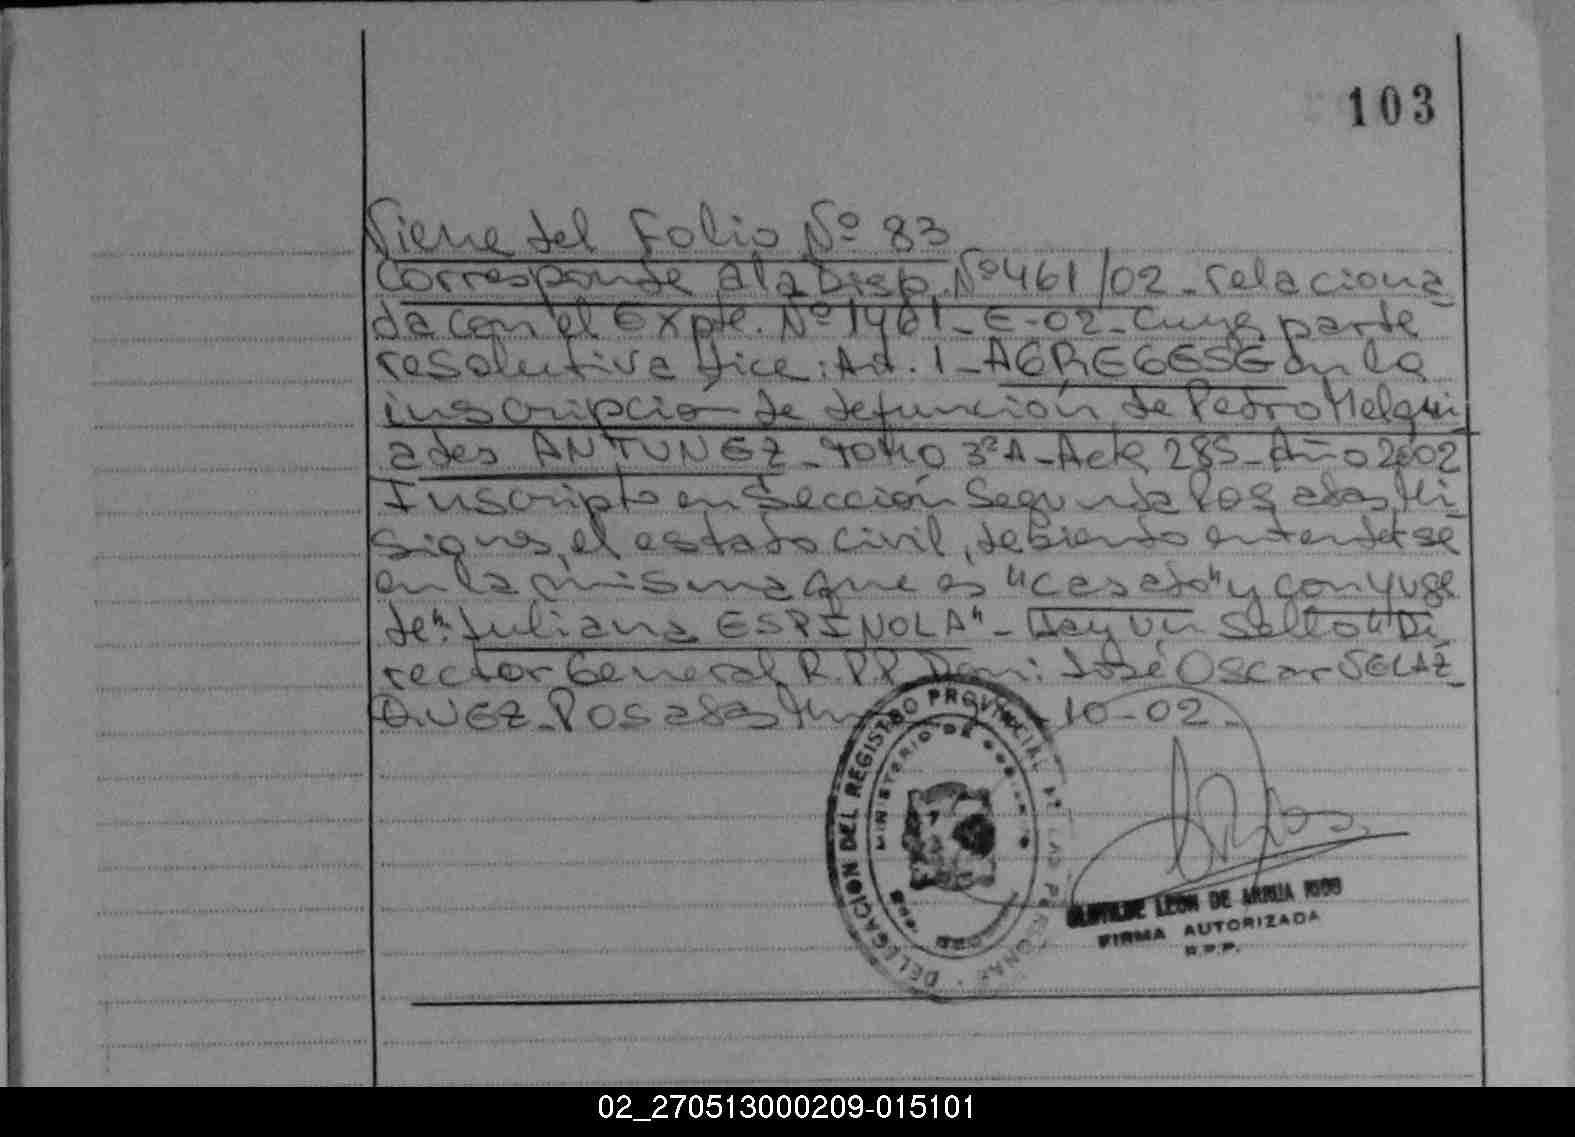 103
Viene del Folio Nº 83
Corresponde a la Disp. Nº 461/02 - relaciona
da con el Expte. Nº 1461 - E - 02 - Cuya parte
resolutiva dice: Art. 1 - AGREGESE en la
inscripción de defunción de Pedro Melqui
ades ANTUNEZ - Tomo 3º A - Acta 285 - Año 2002
Inscripto en Sección Segunda Posadas, Mi
siones, el estado civil, debiendo entenderse
en la misma que es "casado" y conyuge
de": Juliana ESPINOLA" - Hay un Sello" Di
rector General R.P.P. Dn.: José Oscar VELAZ
QUEZ - Posadas 10 - 02 -
DELEGACION DEL REGISTRO PROVINCIAL DE LAS PERSONAS
MINISTERIO DE GOBIERNO
LEON DE ARRUA
FIRMA AUTORIZADA
R.P.P.
02_270513000209-015101